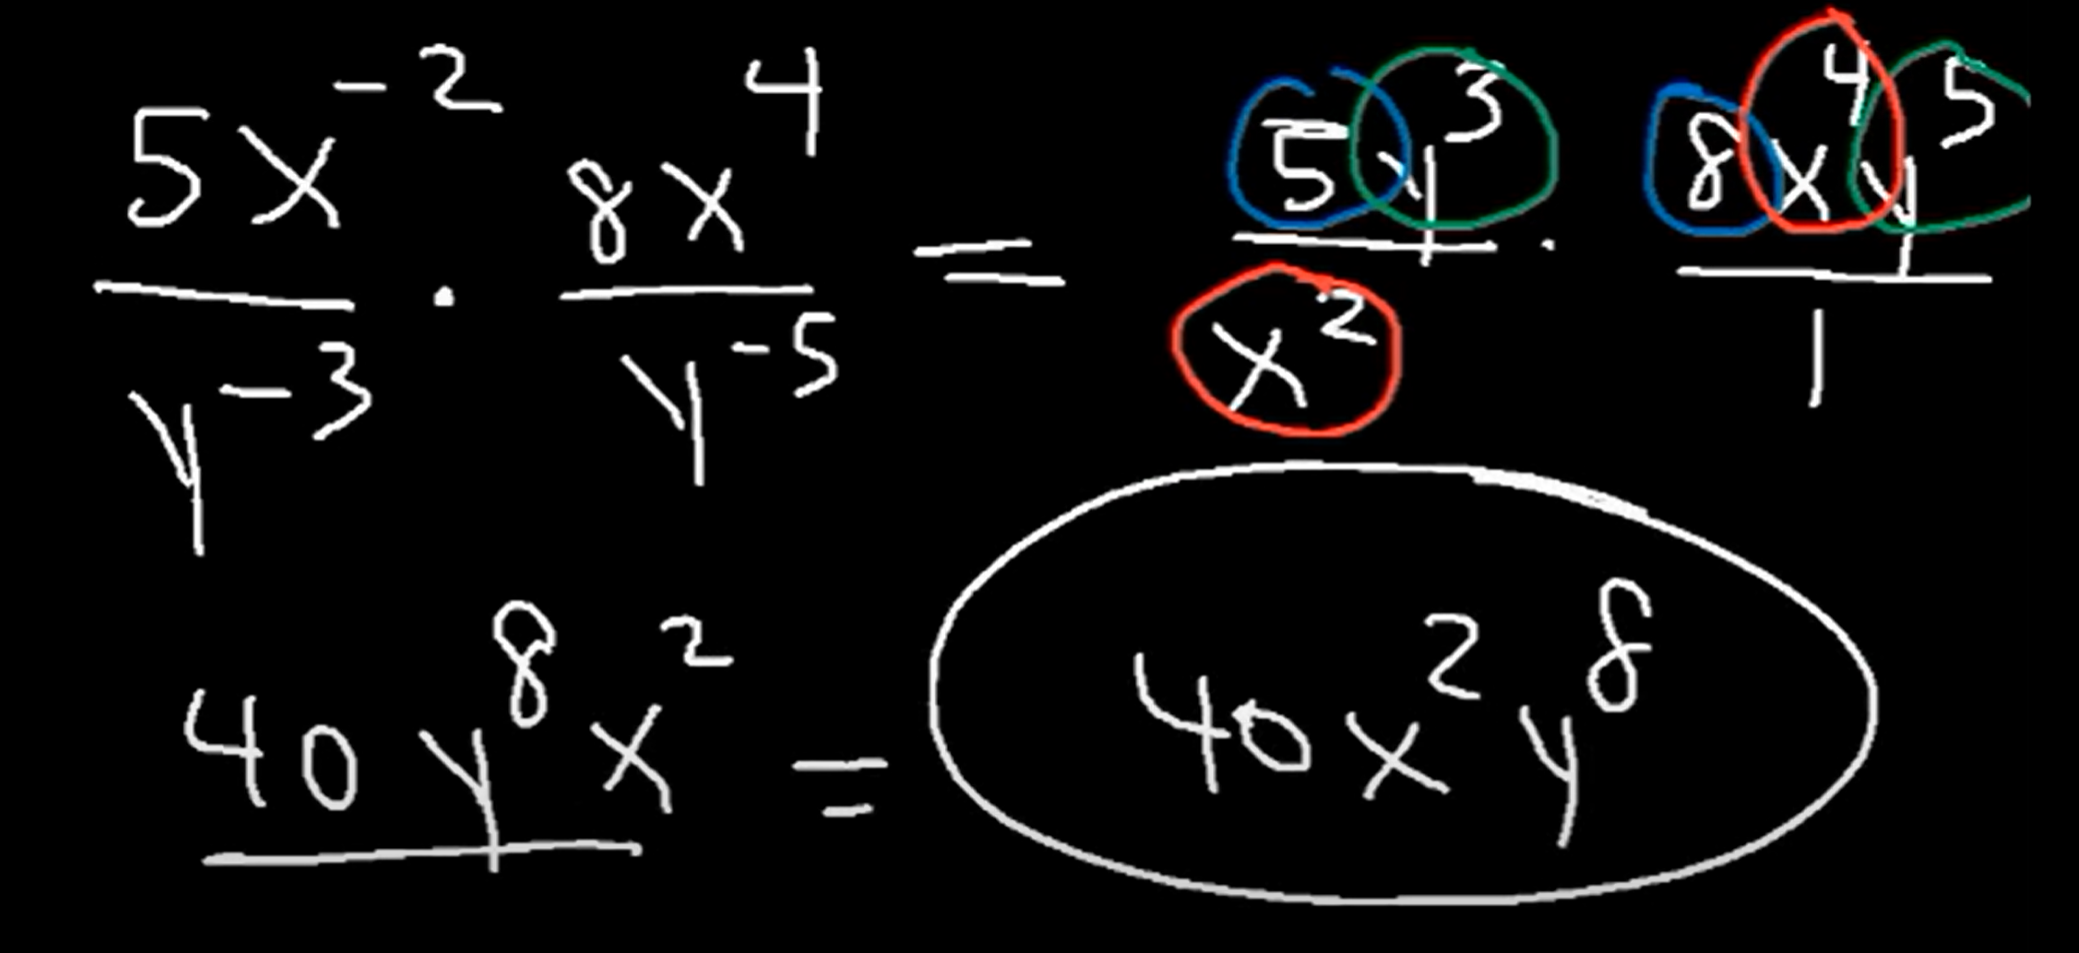 \frac{5x^{-2}}{y^{-3}} \cdot \frac{8x^{4}}{y^{-5}} = \frac{5y^{3}}{x^{2}} \cdot \frac{8x^{4}y^{5}}{1}
\frac{40y^{8}x^{2}}{} = 40x^{2}y^{8}